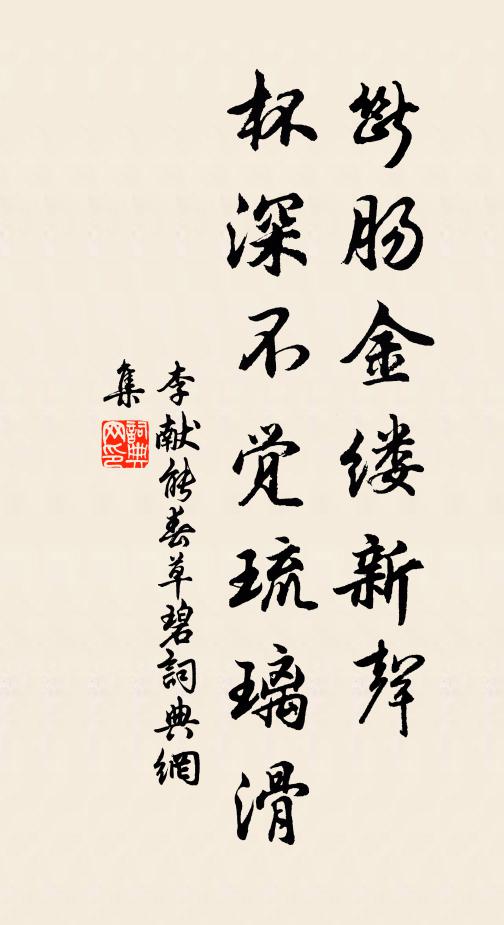 断肠金缕新声
杯深不觉琉璃滑
李献能春草碧詞典網
集
詞典
网印